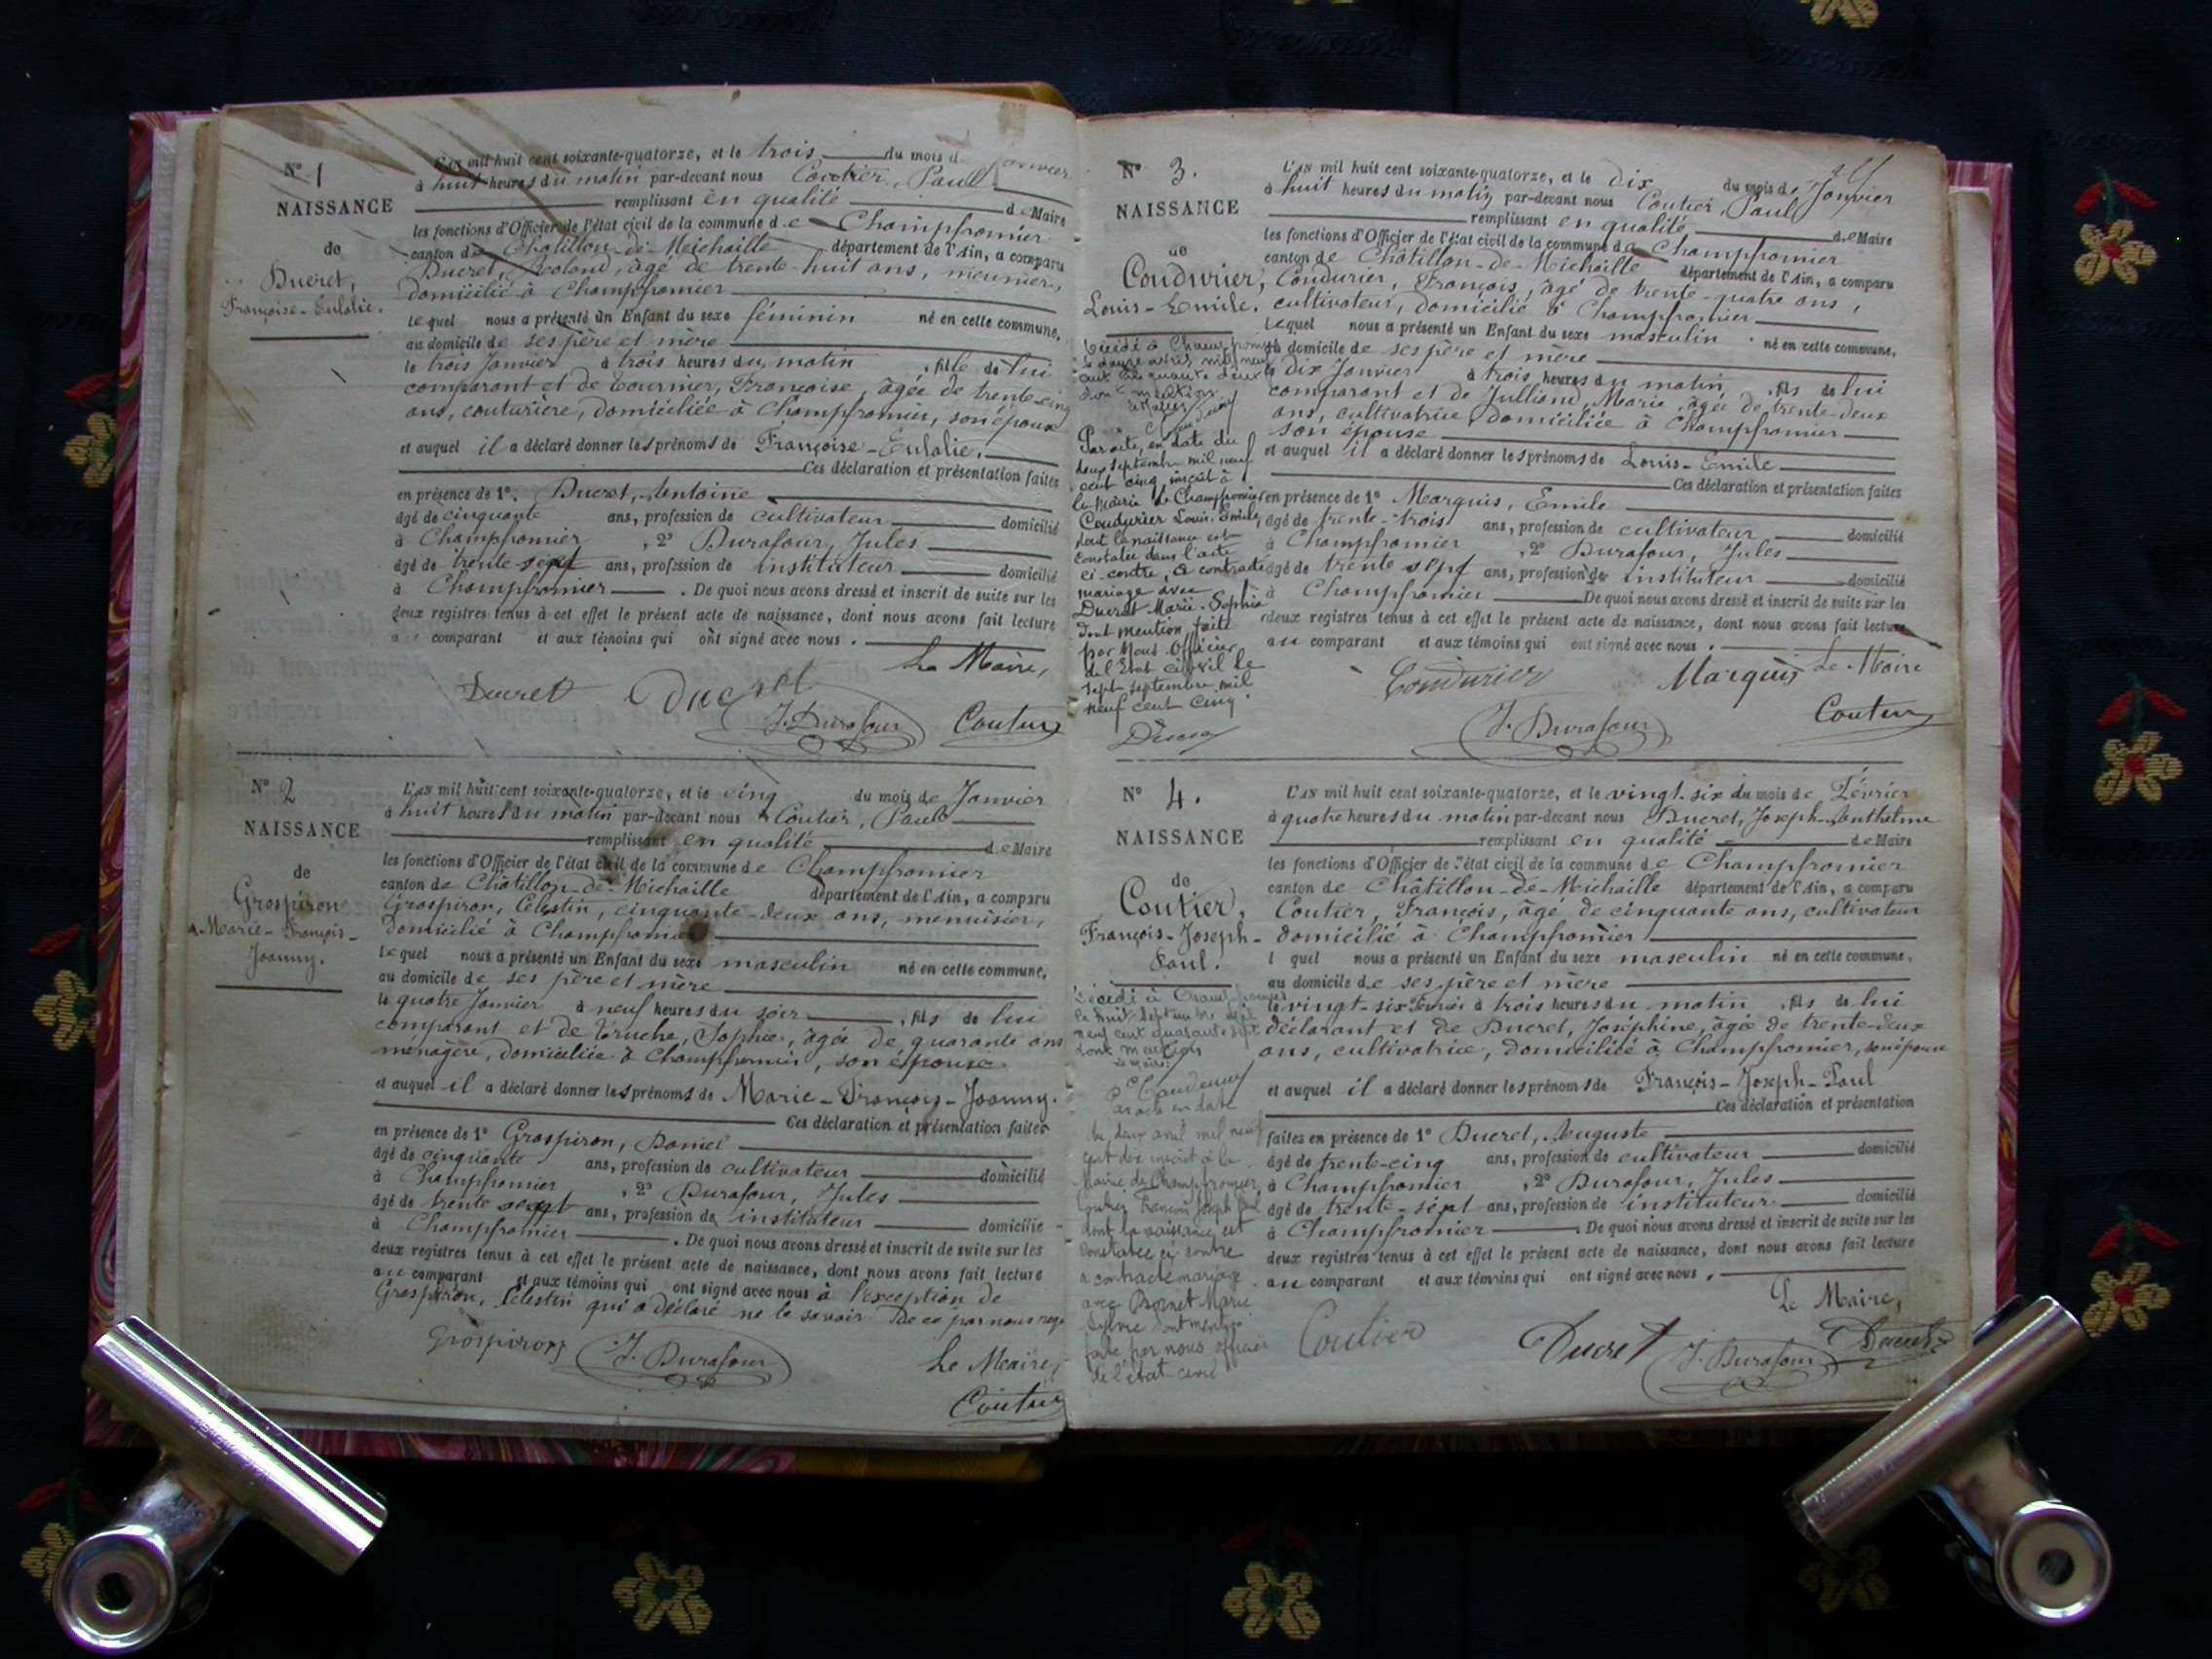 N° 1
NAISSANCE
de
Ducret,
Françoise-Eulalie.
L'AN mil huit cent soixante-quatorze, et le trois du mois de Janvier
à huit heures du matin par-devant nous Coutier, Paul
remplissant en qualité de Maire
les fonctions d'Officier de l'état civil de la commune de Champfromier
canton de Châtillon-de-Michaille département de l'Ain, a comparu
Ducret, Roland, âgé de trente-huit ans, meunier,
domicilié à Champfromier
lequel nous a présenté un Enfant du sexe féminin né en cette commune,
au domicile de ses père et mère
le trois Janvier à trois heures du matin, fille de lui
comparant et de Tournier, Françoise, âgée de trente-cinq
ans, couturière, domiciliée à Champfromier, son épouse
et auquel il a déclaré donner les prénoms de Françoise-Eulalie.
Ces déclaration et présentation faites
en présence de 1°. Ducret, Antoine
âgé de cinquante ans, profession de cultivateur domicilié
à Champfromier, 2° Durafour, Jules
âgé de trente sept ans, profession de instituteur domicilié
à Champfromier. De quoi nous avons dressé et inscrit de suite sur les
deux registres tenus à cet effet le présent acte de naissance, dont nous avons fait lecture
au comparant et aux témoins qui ont signé avec nous.
Le Maire,
Ducret Ducret J. Durafour Coutier
N° 2
NAISSANCE
de
Grospiron
Marie-François-
Joanny.
L'AN mil huit cent soixante-quatorze, et le cinq du mois de Janvier
à huit heures du matin par-devant nous Coutier, Paul
remplissant en qualité de Maire
les fonctions d'Officier de l'état civil de la commune de Champfromier
canton de Châtillon-de-Michaille département de l'Ain, a comparu
Grospiron, Célestin, cinquante-deux ans, menuisier,
domicilié à Champfromier
lequel nous a présenté un Enfant du sexe masculin né en cette commune,
au domicile de ses père et mère
le quatre Janvier à neuf heures du soir, fils de lui
comparant et de Truche, Sophie, âgée de quarante ans
ménagère, domiciliée à Champfromier, son épouse
et auquel il a déclaré donner les prénoms de Marie-François-Joanny.
Ces déclaration et présentation faites
en présence de 1° Grospiron, Daniel
âgé de cinquante ans, profession de cultivateur domicilié
à Champfromier, 2° Durafour, Jules
âgé de trente sept ans, profession de instituteur domicilié
à Champfromier. De quoi nous avons dressé et inscrit de suite sur les
deux registres tenus à cet effet le présent acte de naissance, dont nous avons fait lecture
au comparant et aux témoins qui ont signé avec nous à l'exception de
Grospiron, Célestin qui a déclaré ne le savoir De ce par nous requis
Grospiron J. Durafour Le Maire,
Coutier
N° 3.
NAISSANCE
de
Coudurier,
Louis-Emile.
Décédé à Champfromier
le douze avril mil neuf
cent quarante deux
dont mention
le Maire
Par acte, en date du
deux septembre mil neuf
cent cinq, inscrit à
la Mairie de Champfromier
Coudurier Louis-Emile,
dont la naissance est
constatée dans l'acte
ci-contre, a contracté
mariage avec
Ducret Marie-Sophie
dont mention faite
par Nous Officier
de l'Etat civil le
sept septembre mil
neuf cent cinq.
Ducret
L'AN mil huit cent soixante-quatorze, et le dix du mois de Janvier
à huit heures du matin par-devant nous Coutier, Paul
remplissant en qualité de Maire
les fonctions d'Officier de l'état civil de la commune de Champfromier
canton de Châtillon-de-Michaille département de l'Ain, a comparu
Coudurier, François, âgé de trente-quatre ans,
cultivateur, domicilié à Champfromier
lequel nous a présenté un Enfant du sexe masculin né en cette commune,
au domicile de ses père et mère
le dix Janvier à trois heures du matin, fils de lui
comparant et de Julliand, Marie, âgée de trente-deux
ans, cultivatrice, domiciliée à Champfromier
son épouse
et auquel il a déclaré donner les prénoms de Louis-Emile
Ces déclaration et présentation faites
en présence de 1° Marquis, Emile
âgé de trente-trois ans, profession de cultivateur domicilié
à Champfromier, 2° Durafour, Jules
âgé de trente sept ans, profession de instituteur domicilié
à Champfromier De quoi nous avons dressé et inscrit de suite sur les
deux registres tenus à cet effet le présent acte de naissance, dont nous avons fait lecture
au comparant et aux témoins qui ont signé avec nous.
Coudurier Marquis Le Maire
J. Durafour Coutier
N° 4.
NAISSANCE
de
Coutier,
François-Joseph-
Paul.
Décédé à Champfromier
le huit septembre mil
neuf cent quarante sept
dont mention
Le Maire
Par acte en date
du deux avril mil neuf
cent dix inscrit à la
Mairie de Champfromier
Coutier François Joseph Paul
dont la naissance est
constatée ci-contre
a contracté mariage
avec Bornet Marie
Sylvie dont mention
faite par nous officier
de l'état civil
L'AN mil huit cent soixante-quatorze, et le vingt-six du mois de Février
à quatre heures du matin par-devant nous Ducret, Joseph-Anthelme
remplissant en qualité de Maire
les fonctions d'Officier de l'état civil de la commune de Champfromier
canton de Châtillon-de-Michaille département de l'Ain, a comparu
Coutier, François, âgé de cinquante ans, cultivateur
domicilié à Champfromier
lquel nous a présenté un Enfant du sexe masculin né en cette commune,
au domicile de ses père et mère
le vingt-six Février à trois heures du matin, fils de lui
déclarant et de Ducret, Joséphine, âgée de trente-deux
ans, cultivatrice, domiciliée à Champfromier, son épouse
et auquel il a déclaré donner les prénoms de François-Joseph-Paul
Ces déclaration et présentation
faites en présence de 1° Ducret, Auguste
âgé de trente-cinq ans, profession de cultivateur domicilié
à Champfromier, 2° Durafour, Jules
âgé de trente-sept ans, profession de instituteur domicilié
à Champfromier. De quoi nous avons dressé et inscrit de suite sur les
deux registres tenus à cet effet le présent acte de naissance, dont nous avons fait lecture
au comparant et aux témoins qui ont signé avec nous.
Le Maire,
Coutier Ducret J. Durafour Ducret